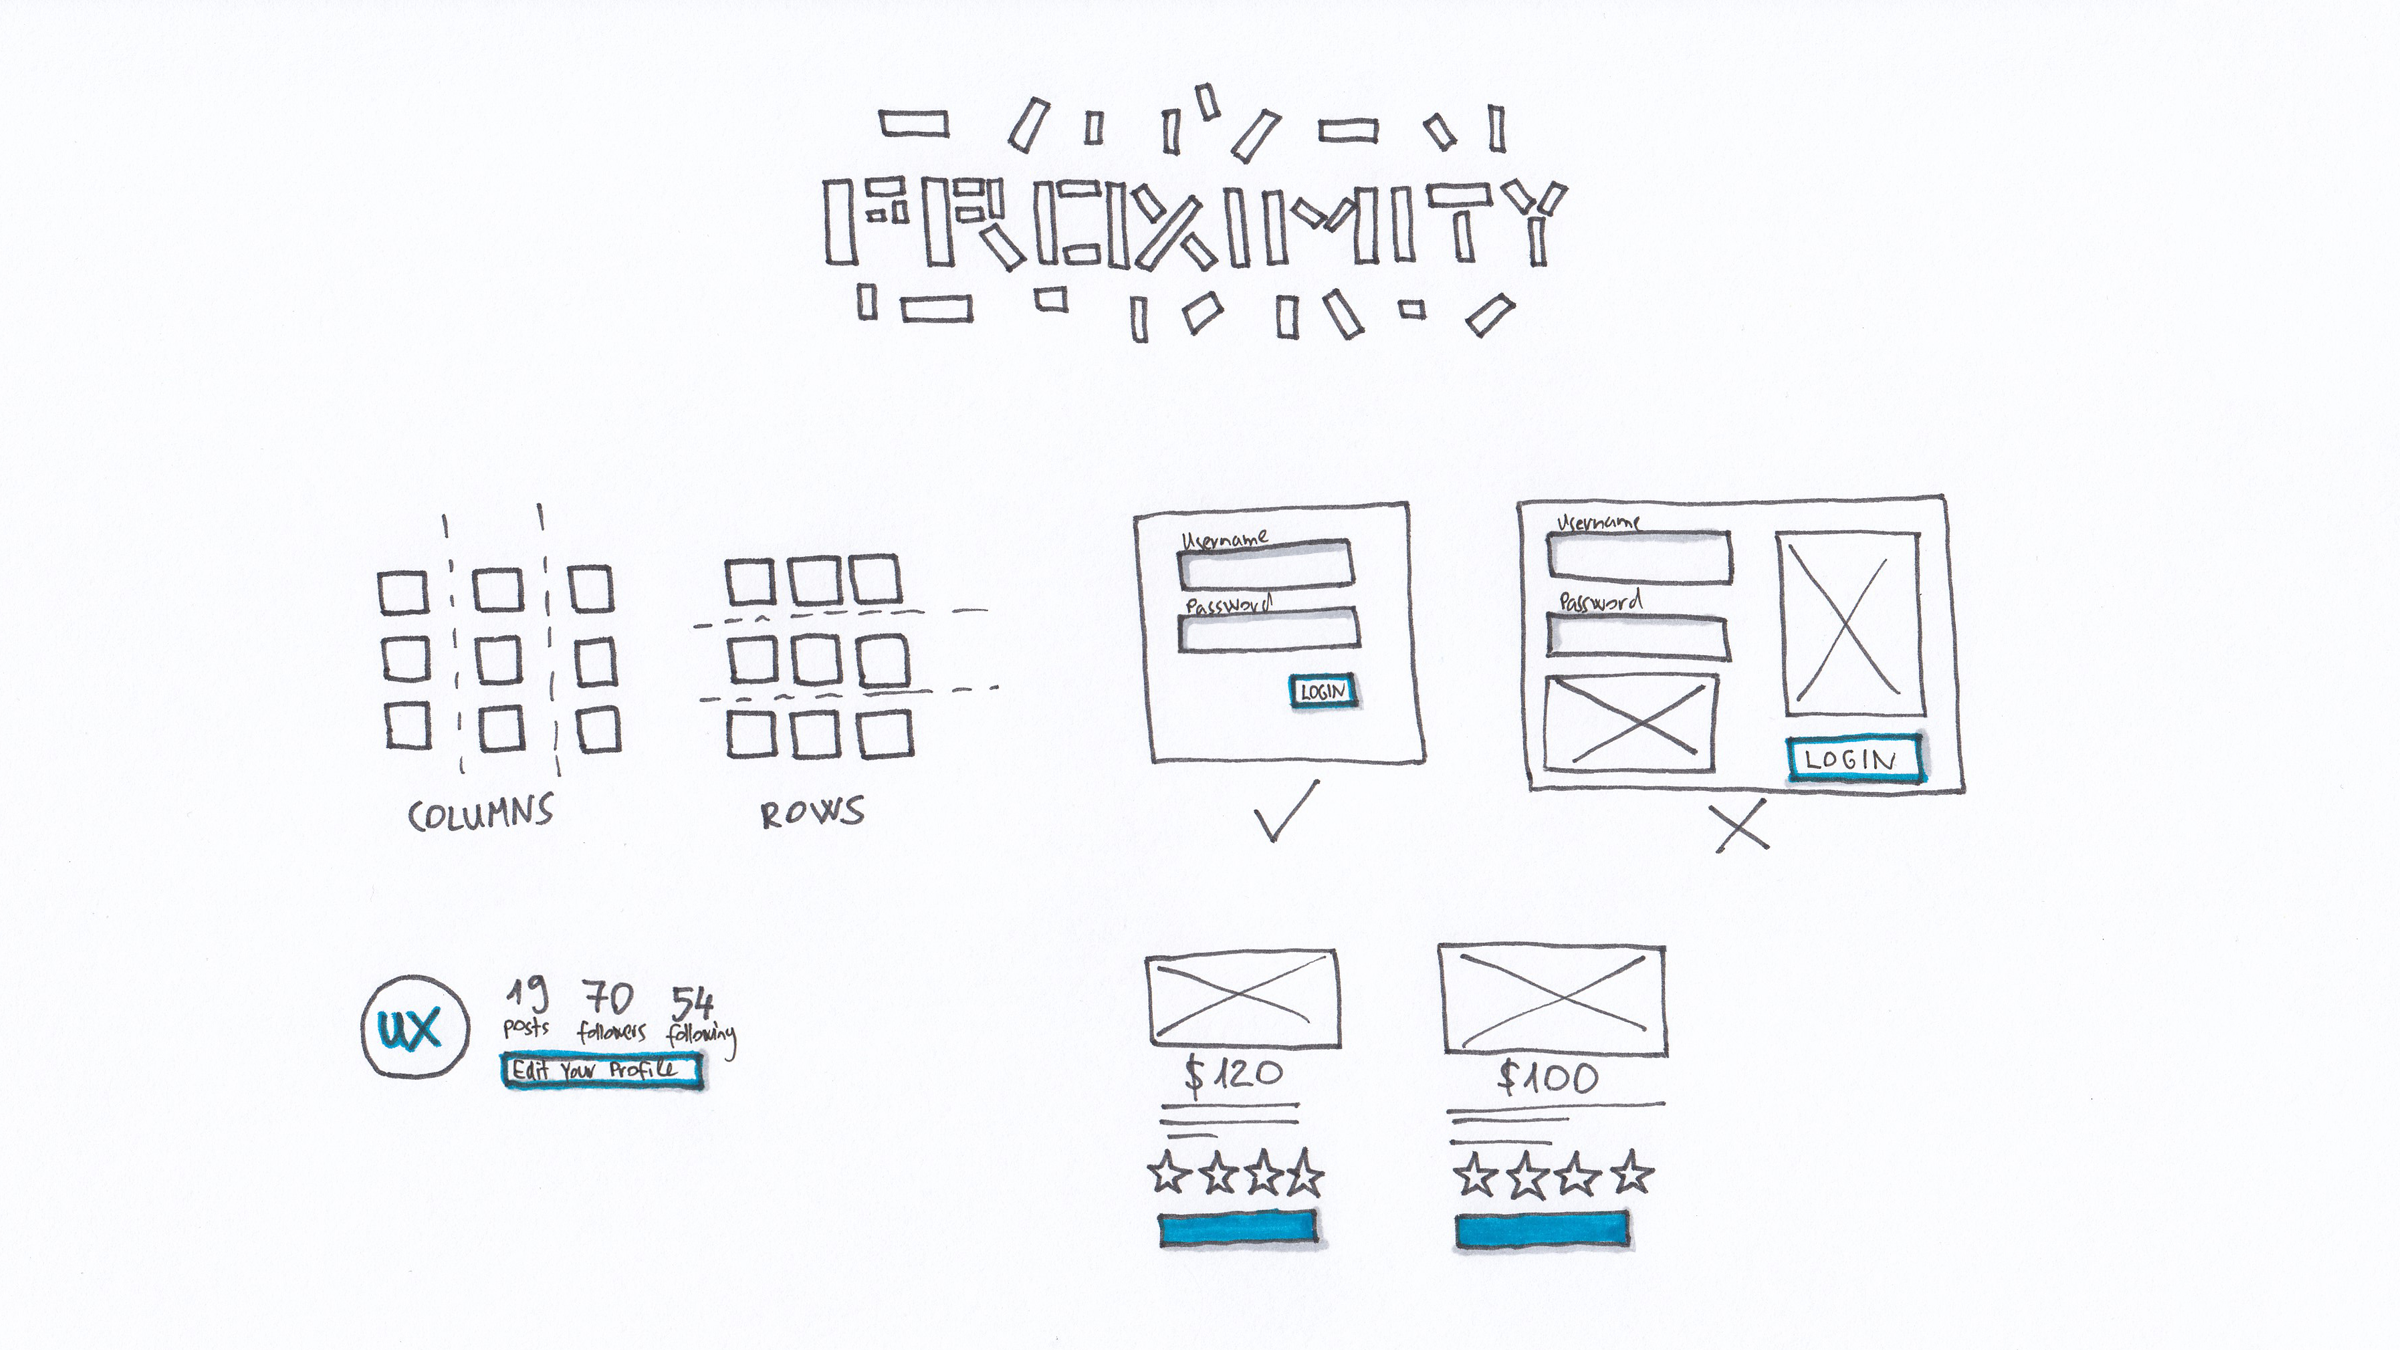 PROXIMITY
COLUMNS
ROWS
Username
Password
LOGIN
Username
Password
LOGIN
UX
19 70 54
posts followers following
Edit Your Profile
$120
$100